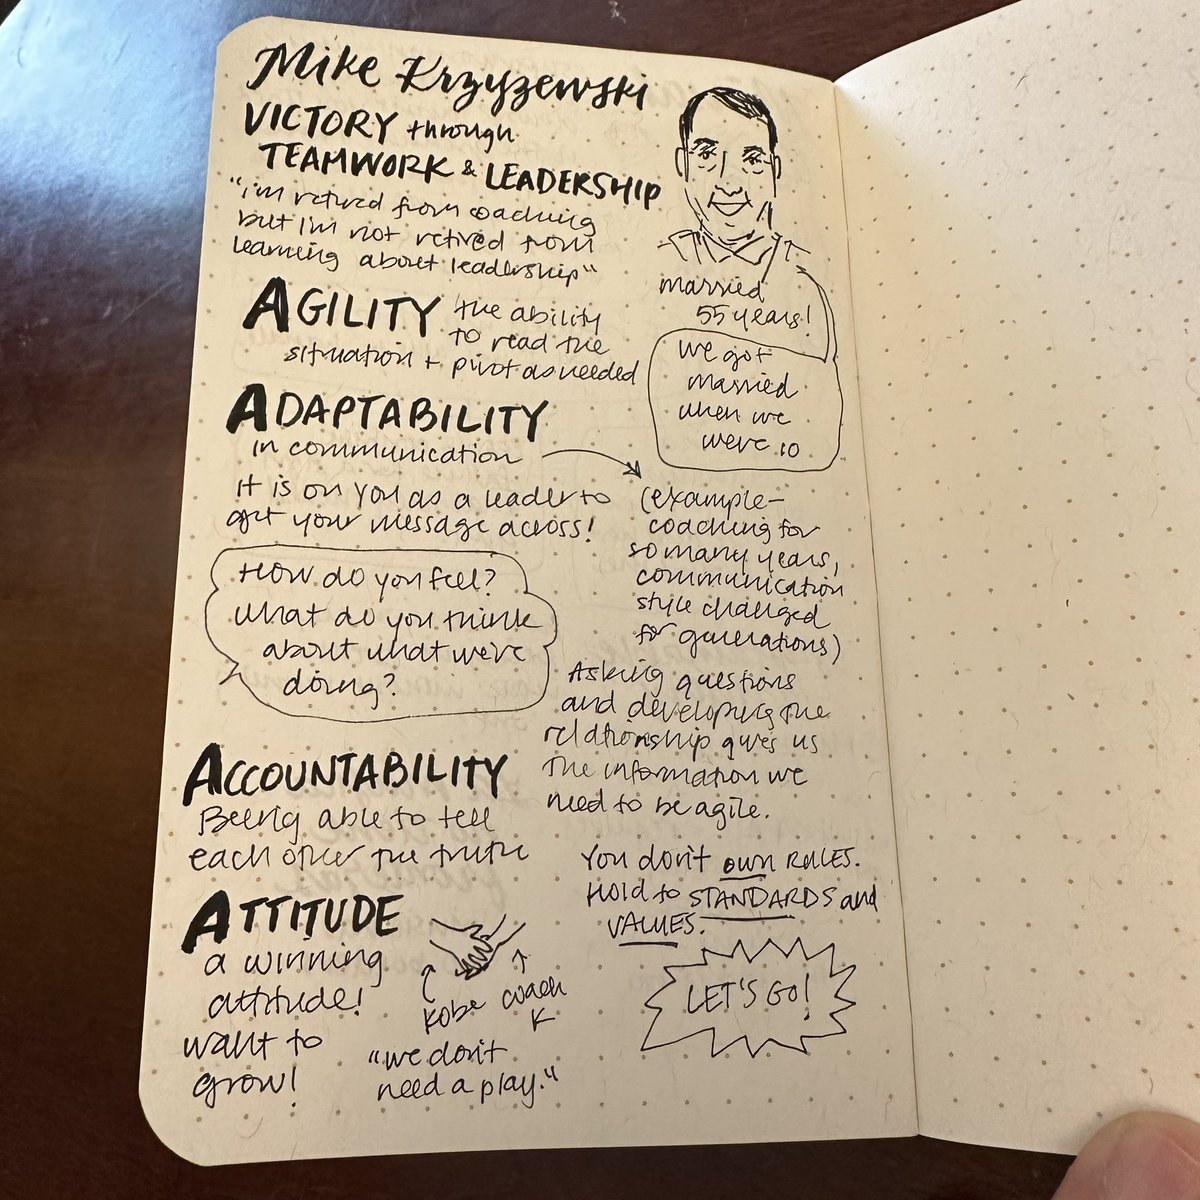 Mike Krzyzewski
VICTORY through
TEAMWORK & LEADERSHIP
"i'm retired from coaching
but i'm not retired from
learning about leadership"
married
55 years!
we got
married
when we
were 10
AGILITY the ability
to read the
situation + pivot as needed
ADAPTABILITY
in communication
It is on you as a leader to
get your message across!
(example-
coaching for
so many years,
communication
style changed
for generations)
How do you feel?
What do you think
about what we're
doing?
Asking questions
and developing the
relationship gives us
the information we
need to be agile.
ACCOUNTABILITY
Being able to tell
each other the truth
You don't own RULES.
Hold to STANDARDS and
VALUES.
LET'S GO!
ATTITUDE
a winning
attitude!
want to
grow!
Kobe
Coach
K
"we don't
need a play."